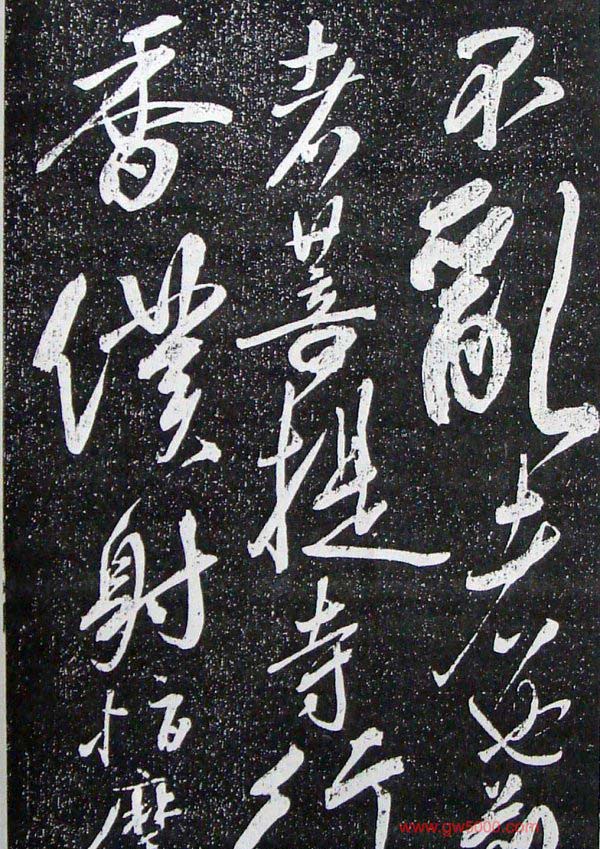 不亂者也前
者菩提寺行
香僕射指麾
www.gw5000.com